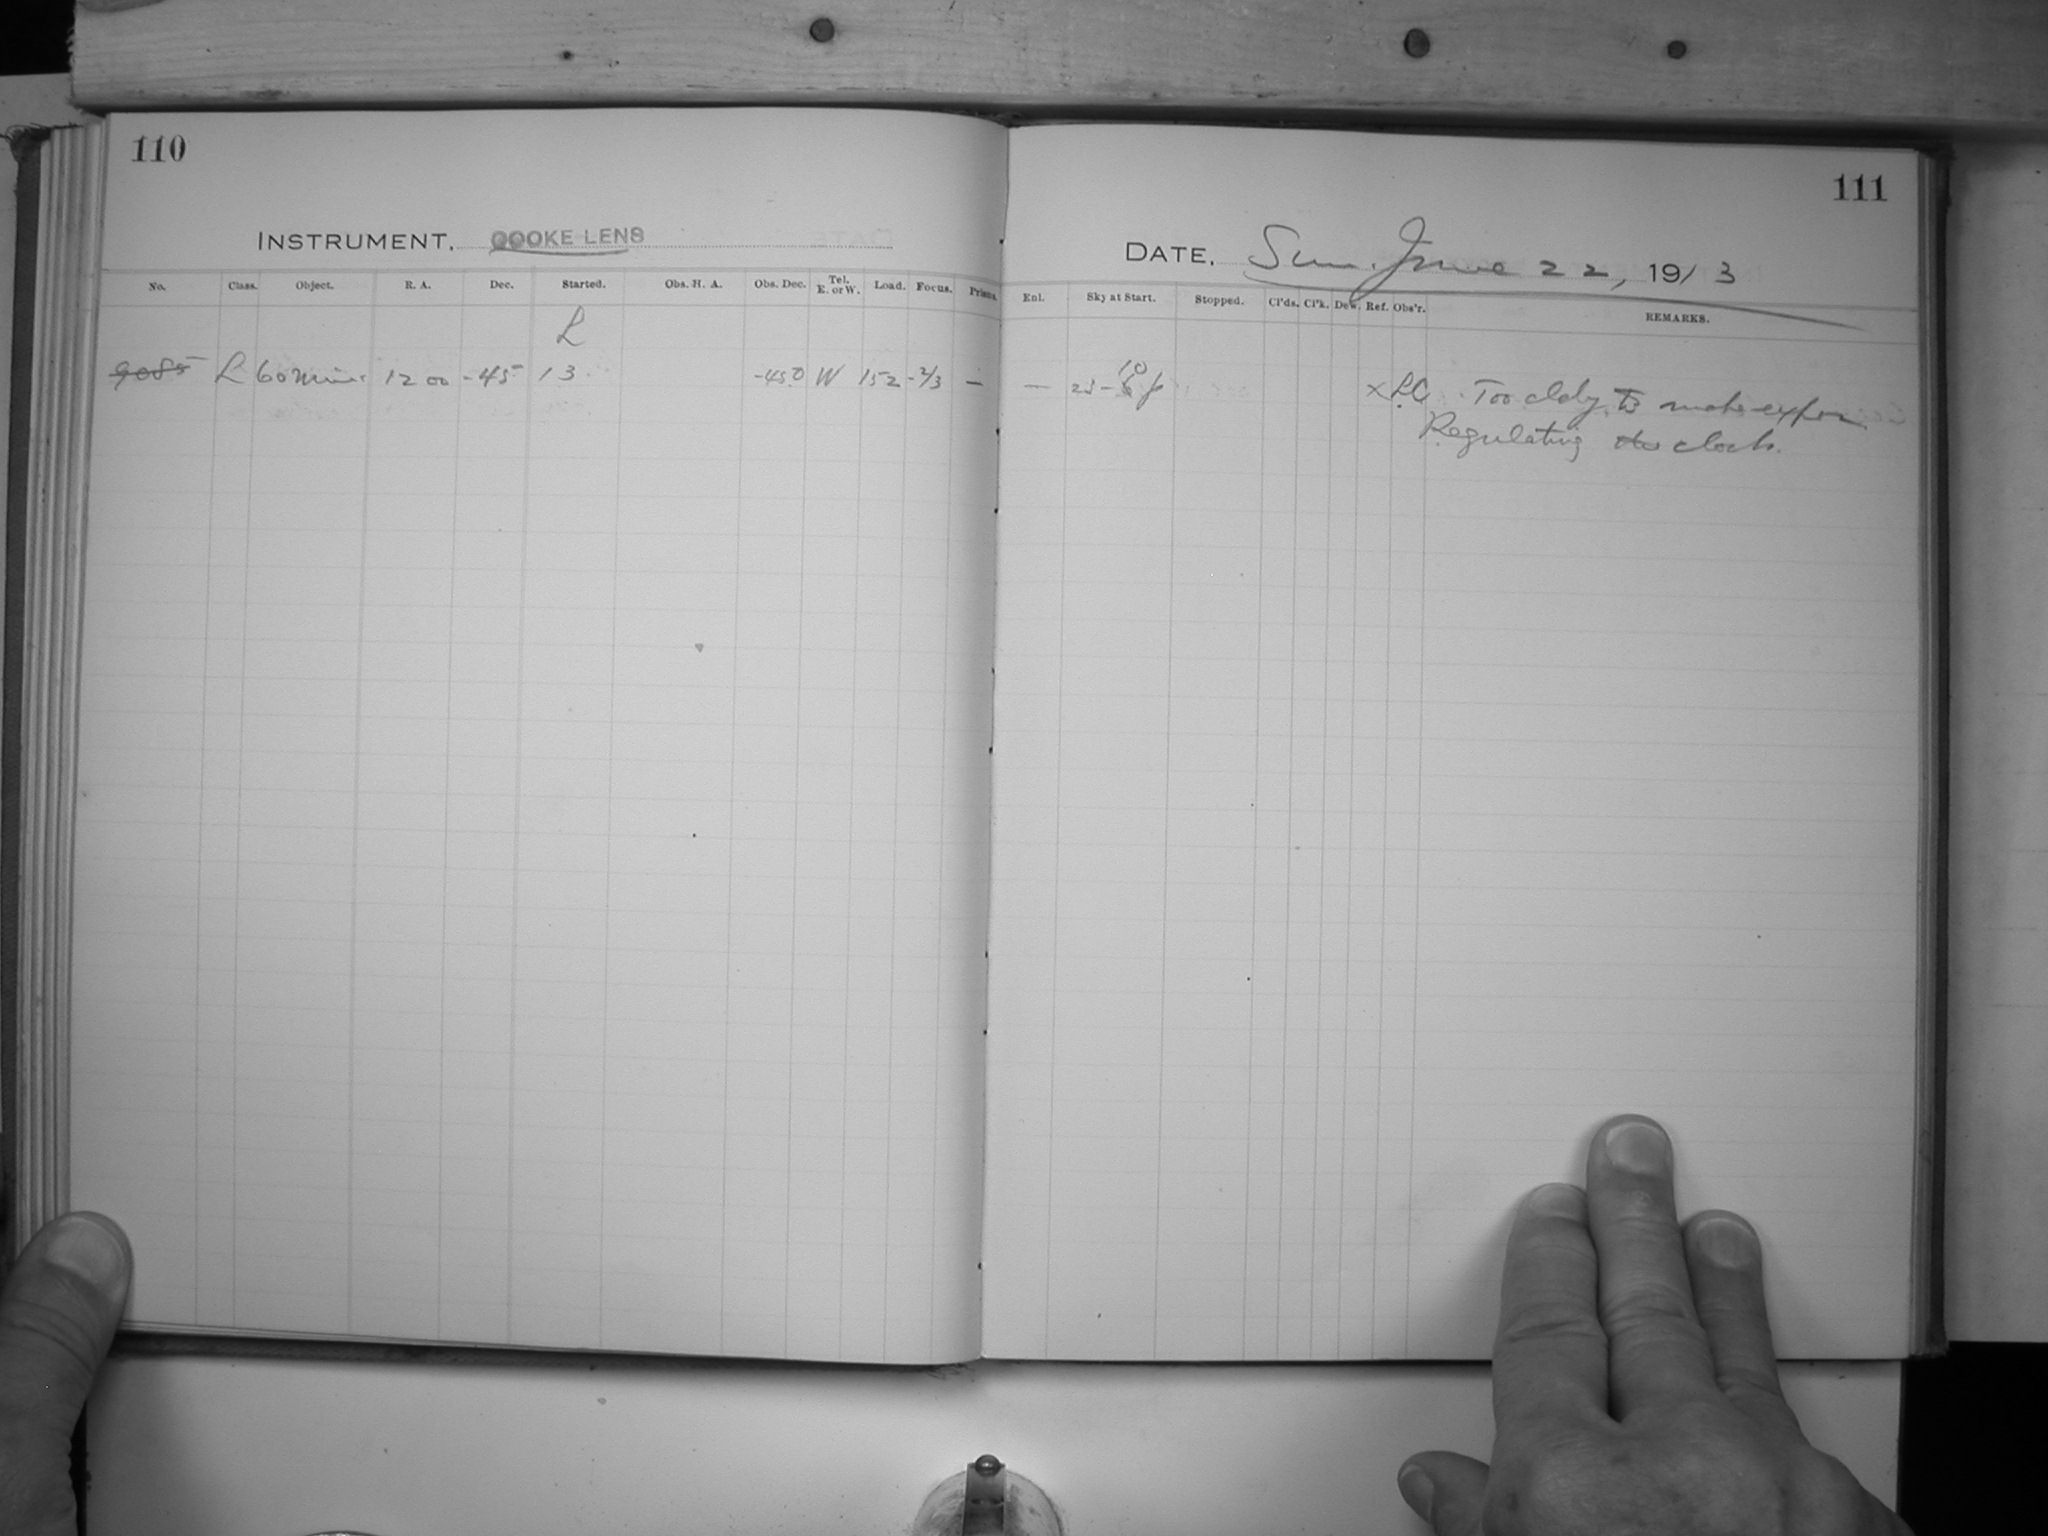 110
INSTRUMENT. COOKE LENS
No. Class. Object. R. A. Dec. Started. Obs. H. A. Obs. Dec. Tel. E. or W. Load. Focus. Prisms.
L
9085 L 60 mins 12 00 -45 13 -45.0 W 152 -2/3 —
111
DATE. Sun. June 22, 1913
Enl. Sky at Start. Stopped. Cl'ds. Cl'k. Dew. Ref. Obs'r. REMARKS.
10
— 23 - p x LC Too cldy to make expos.
Regulating the clock.